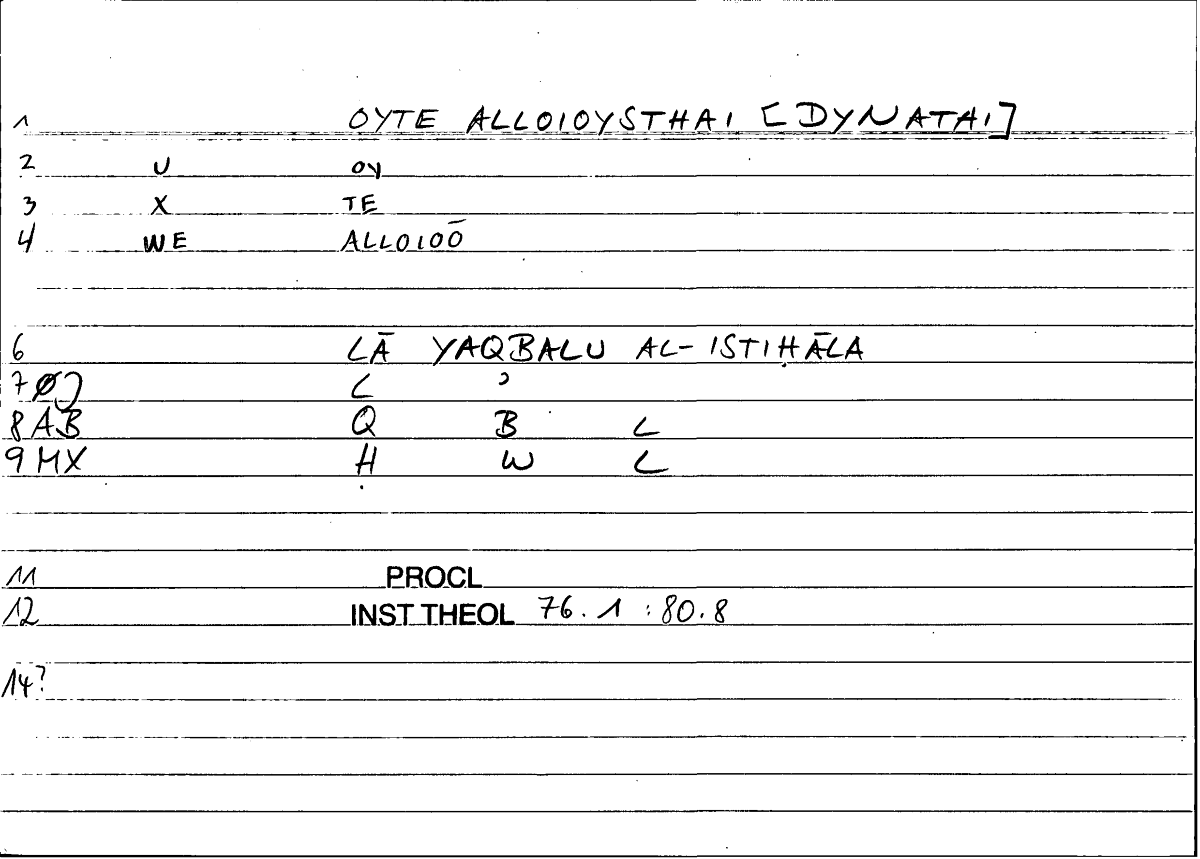 1 OYTE ALLOIOYSTHAI [DYNATAI]
2 U OY
3 X TE
4 WE ALLOIOŌ
6 LĀ YAQBALU AL-ISTIḤĀLA
7 ØJ L ʾ
8 AB Q B L
9 MX Ḥ W L
11 PROCL
12 INST THEOL 76.1 : 80.8
14?